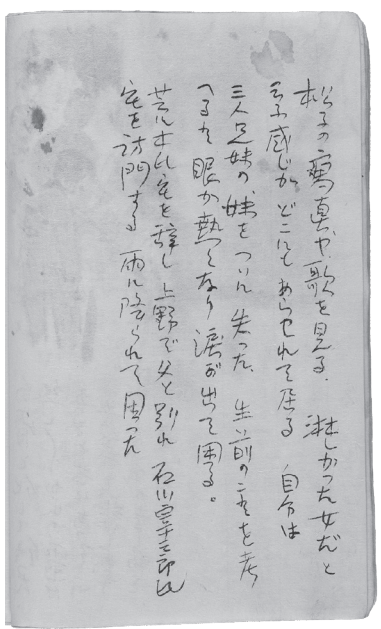 松子の寫真や歌を見る. 淋しかった女だと
云ふ感じがどこにもあらはれて居る 自分は
三人兄妹の、妹をついに失った、生前の事を考
へると眼が熱くなり涙が出て困る。
荒木氏宅を辞し上野で父と別れ 石川宰三郎氏
宅を訪門する 雨に降られて困った